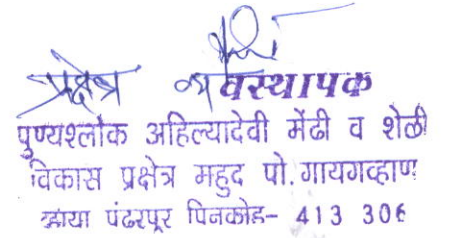 प्रक्षेत्र व्यवस्थापक
पुण्यश्लोक अहिल्यादेवी मेंढी व शेळी
विकास प्रक्षेत्र महुद पो. गायगव्हाण
व्हाया पंढरपूर पिनकोड- 413 306